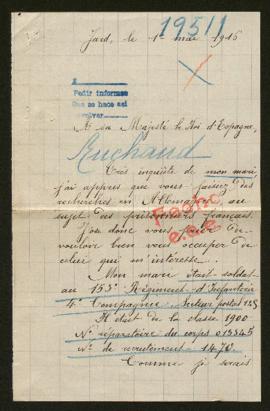 19511
Jard, le 1er mai 1916
Pedir informes
Que se hace así
A sa Majesté le Roi d'Espagne,
Ruchaud
Très inquiète de mon mari
j'ai appris que vous faisiez des
recherches en Allemagne au
sujet des prisonniers français.
donc vous
vouloir bien vous occuper de
celui qui m'intéresse.
Mon mari était soldat
au 153e Régiment d'Infanterie
4e Compagnie. Secteur postal 125
Il était de la classe 1900
No répératoire du corps 013345
No de recrutement 1470.
Comme je serais